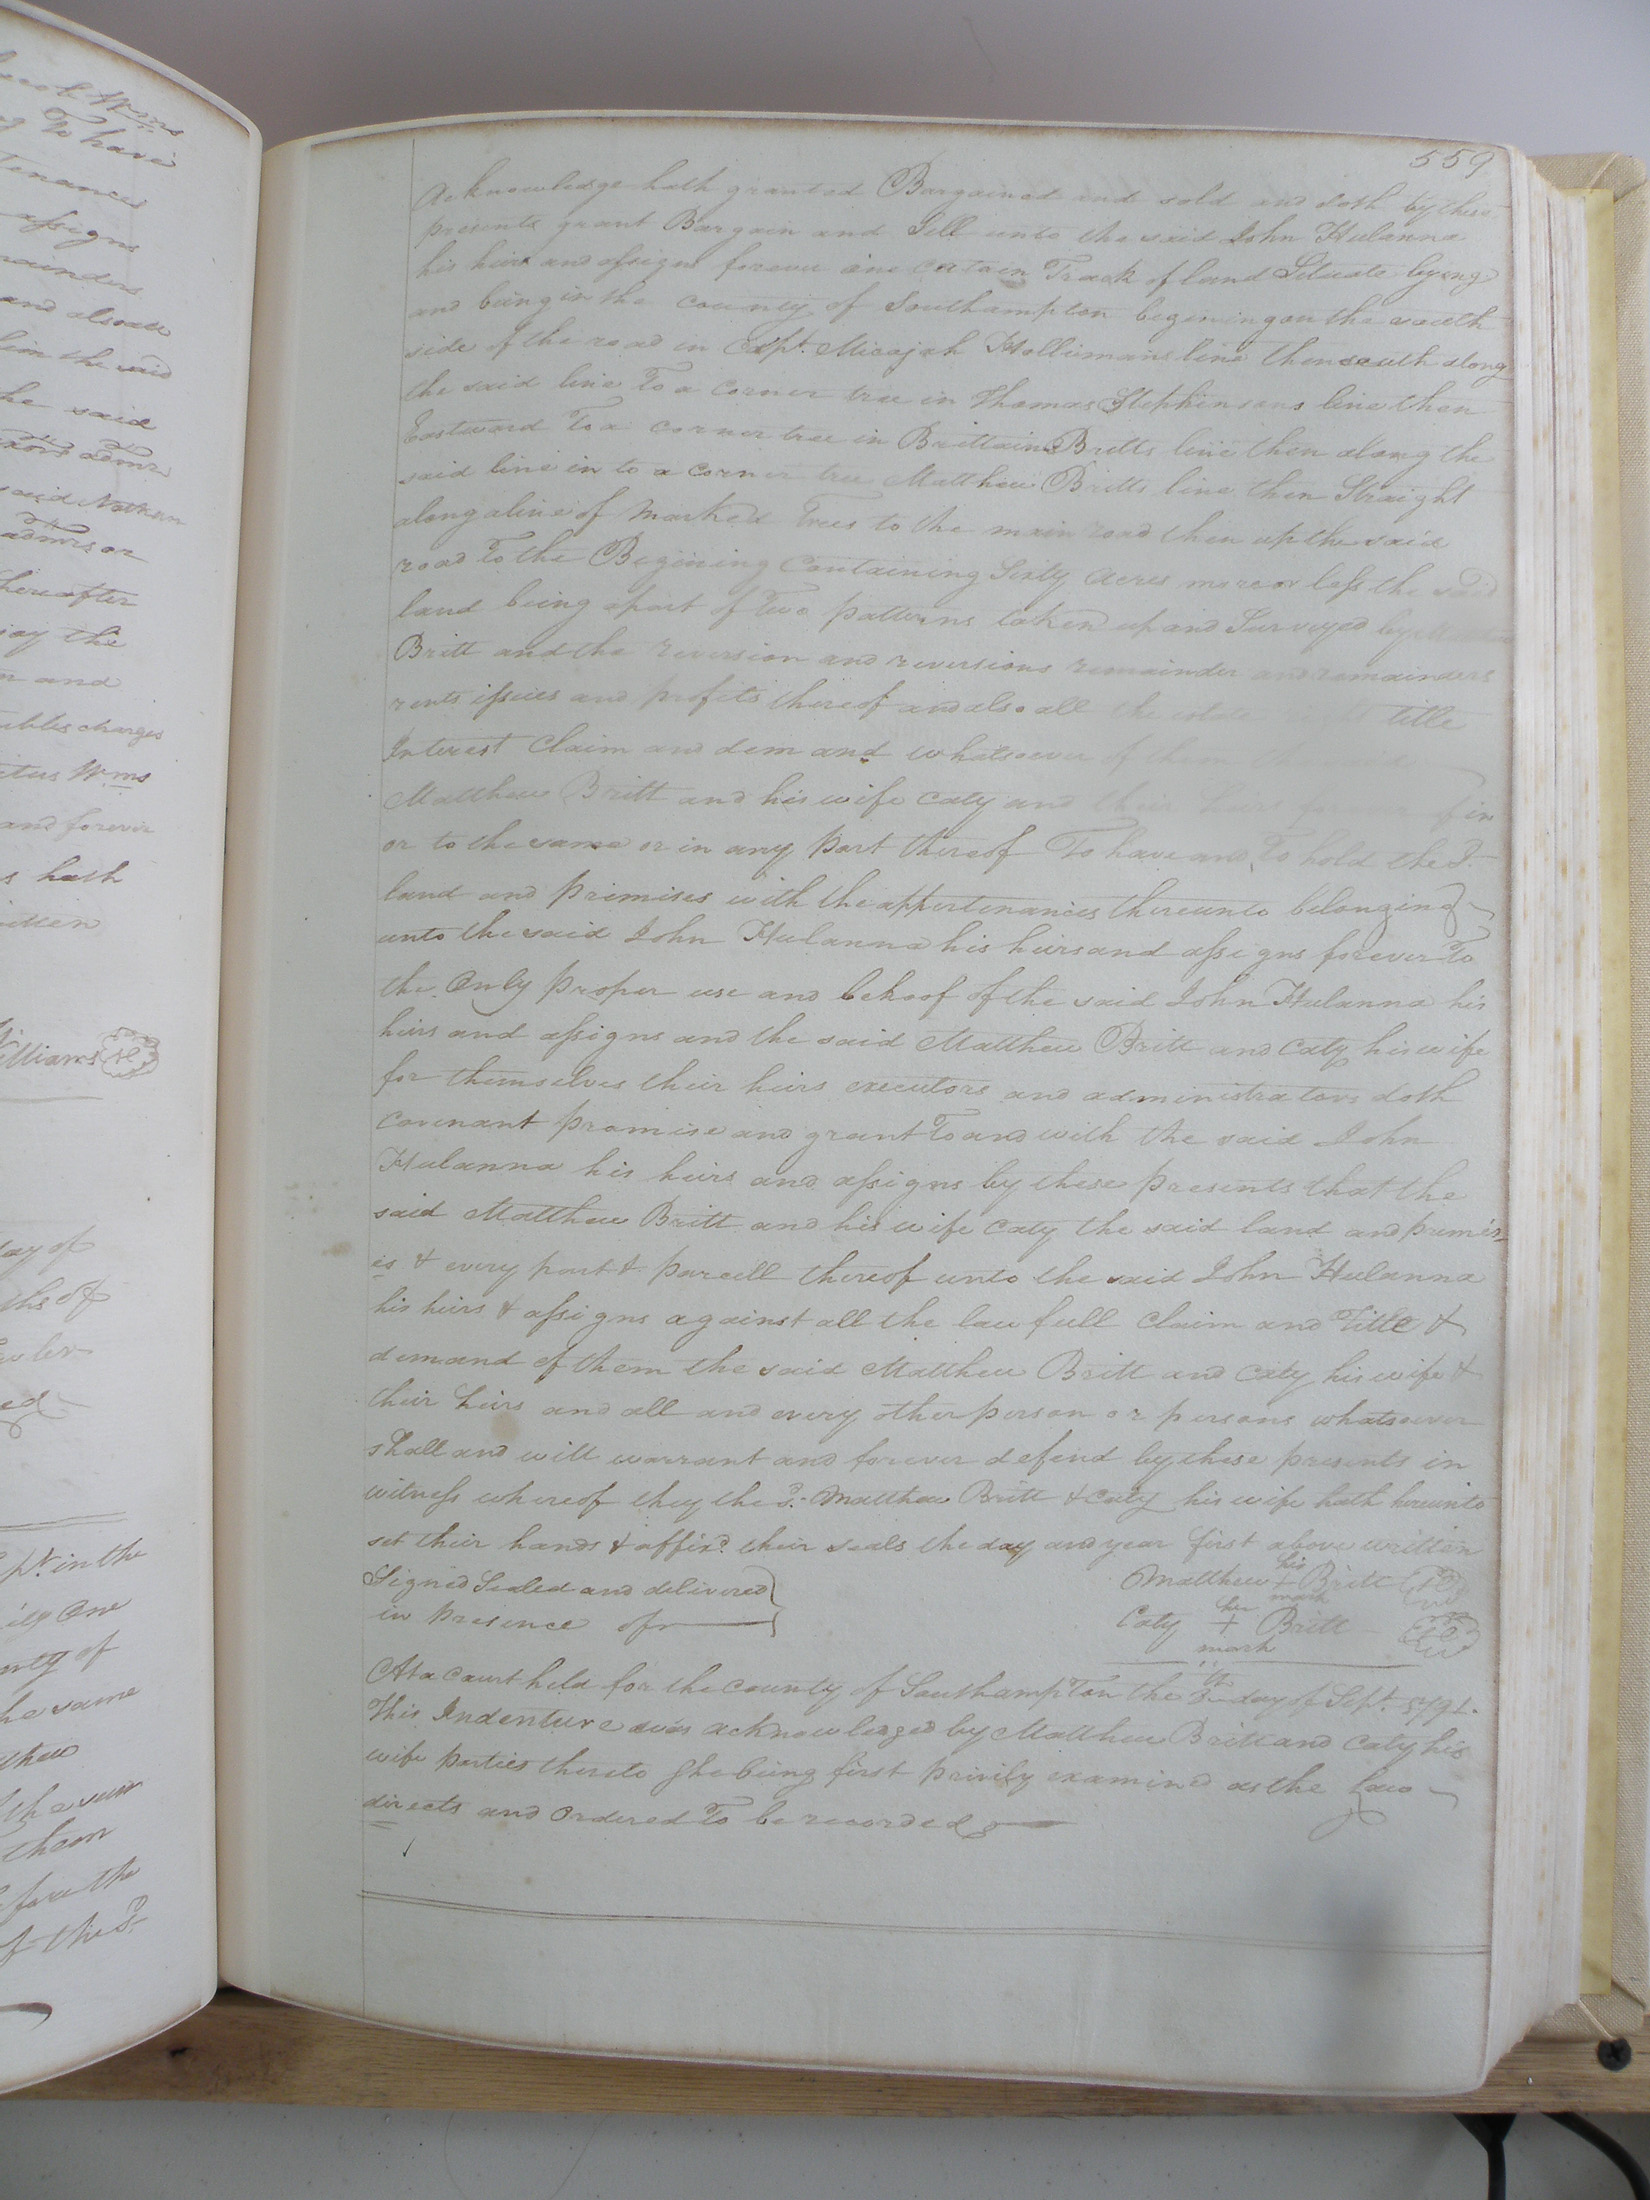 559
Acknowledge hath granted Bargained and sold and doth by these
presents grant Bargain and Sell unto the said John Hulanna
his heirs and assigns forever one certain Track of land Situate lying
and being in the county of Southampton begining on the south
side of the road in Capt. Micajah Hollimans line then south along
the said line To a corner tree in Thomas Stephensons line then
Eastward To a corner tree in Brittain Britts line then along the
said line in to a corner tree Matthew Britts line then Straight
along a line of marked Trees to the main road then up the said
road To the Begining Containing Sixty Acres more or less the said
land being apart of Two patterns taken up and Surveyed by
Britt and the reversion and reversions remainder and remainders
rents issues and profits thereof and also all the estate right title
Interest Claim and demand whatsoever of them the said
Matthew Britt and his wife Caty and their heirs forever of in
or to the same or in any part thereof To have and To hold the Sd.
land and primises with the appertenances thereunto belonging
unto the said John Hulanna his heirs and assigns forever To
the Only proper use and behoof of the said John Hulanna his
heirs and assigns and the said Matthew Britt and Caty his wife
for themselves their heirs executors and administrators doth
covenant promise and grant To and with the said John
Hulanna his heirs and assigns by these presents that the
said Matthew Britt and his wife Caty the said land and primis
es & every part & parcell thereof unto the said John Hulanna
his heirs & assigns against all the law full Claim and Title &
demand of them the said Matthew Britt and Caty his wife &
their heirs and all and every other person or persons whatsoever
shall and will warrant and forever defend by these presents in
witness whereof they the sd. Matthew Britt & Caty his wife hath hereunto
set their hands & affixd. their seals the day and year first above written
Signed Sealed and delivered
in presence of
his
Matthew + Britt
mark
her
Caty + Britt
mark
At a court held for the county of Southampton the 8th day of Sept. 1791.
This Indenture was acknowledged by Matthew Britt and Caty his
wife parties thereto She being first privily examined as the Law
directs and Ordered To be recorded
To have
assigns
and also all
him the said
he said
said Nathan
hereafter
the
and
charges
Wms
and forever
hath
Williams
day of
in the
One
of
the same
the sum
them
before the
of the Sd.